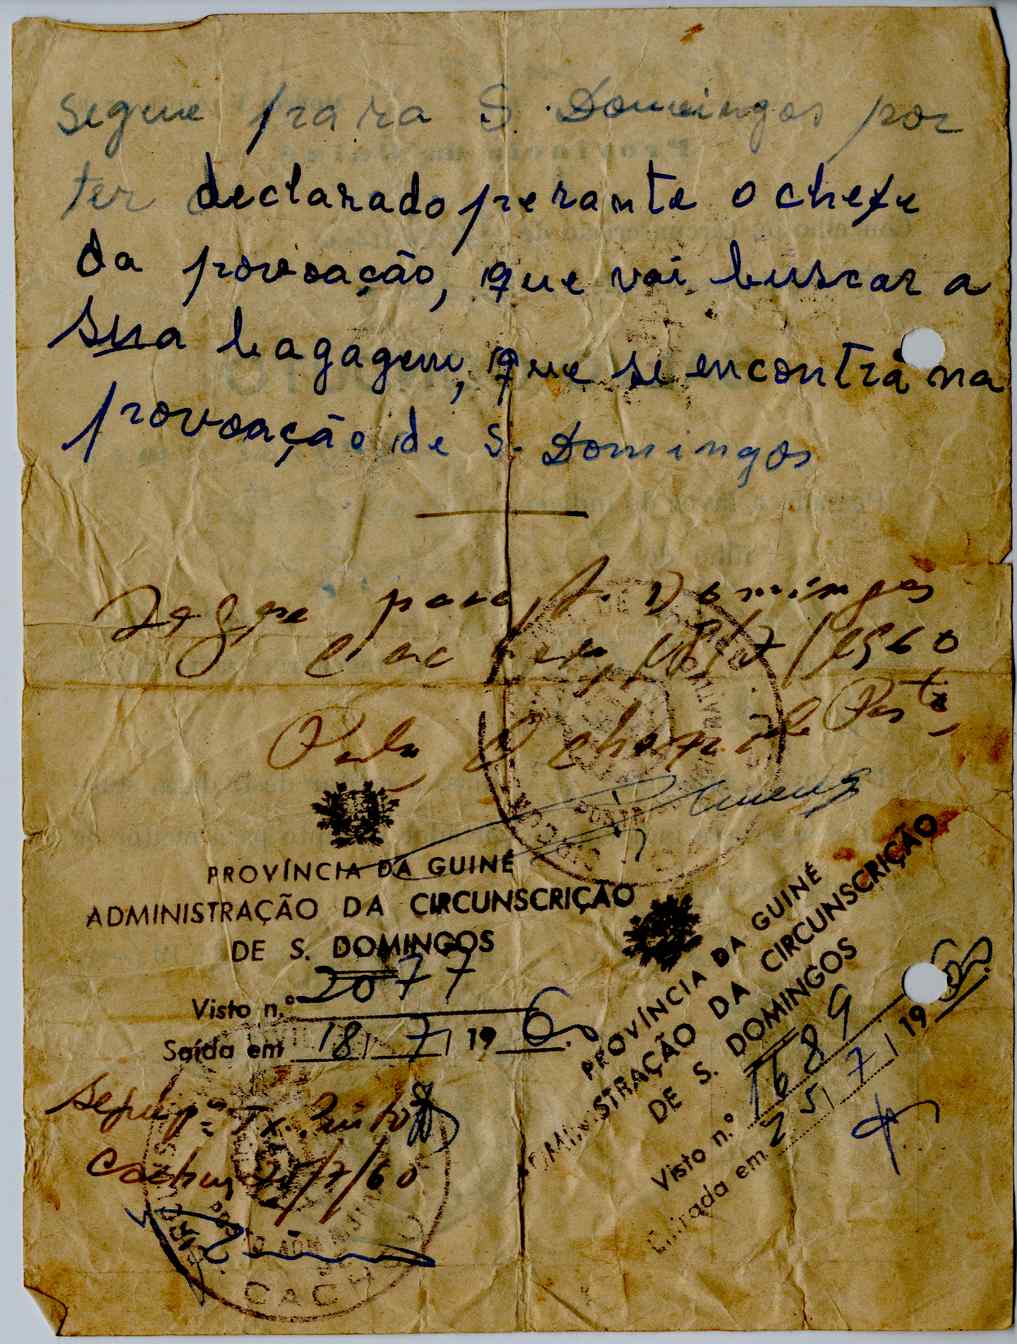 segue para S. Domingos por
ter declarado perante o chefe
da povoação, que vai buscar a
sua bagagem, que se encontra na
provoação de S. Domingos
Segue para S. Domingos
18/7/1960
Pelo Chefe de Posto
PROVÍNCIA DA GUINÉ
ADMINISTRAÇÃO DA CIRCUNSCRIÇÃO
DE S. DOMINGOS
Visto n.º 2077
Saída em 18/7/1960
Segue pª Tx. Pinto
Cacheu 20/7/60
CACHEU
PROVÍNCIA DA GUINÉ
ADMINISTRAÇÃO DA CIRCUNSCRIÇÃO
DE S. DOMINGOS
Visto n.º 1689
Entrada em 25/7/1960